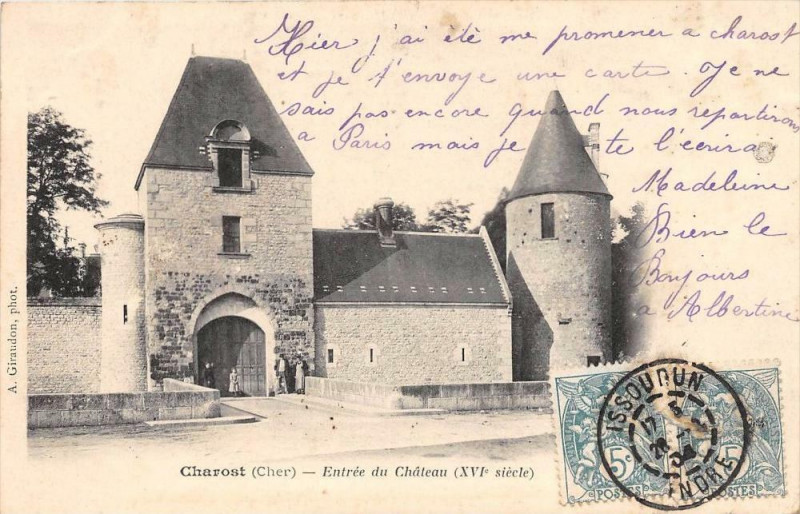 Hier j'ai été me promener a charost
et je t'envoye une carte. Je ne
sais pas encore quand nous repartirons
a Paris mais je te l'écrirai
Madeleine
Bien le
Bonjours
a Albertine
A. Giraudon, phot.
Charost (Cher) — Entrée du Château (XVIe siècle)
ISSOUDUN
INDRE
5c 5c
POSTES POSTES